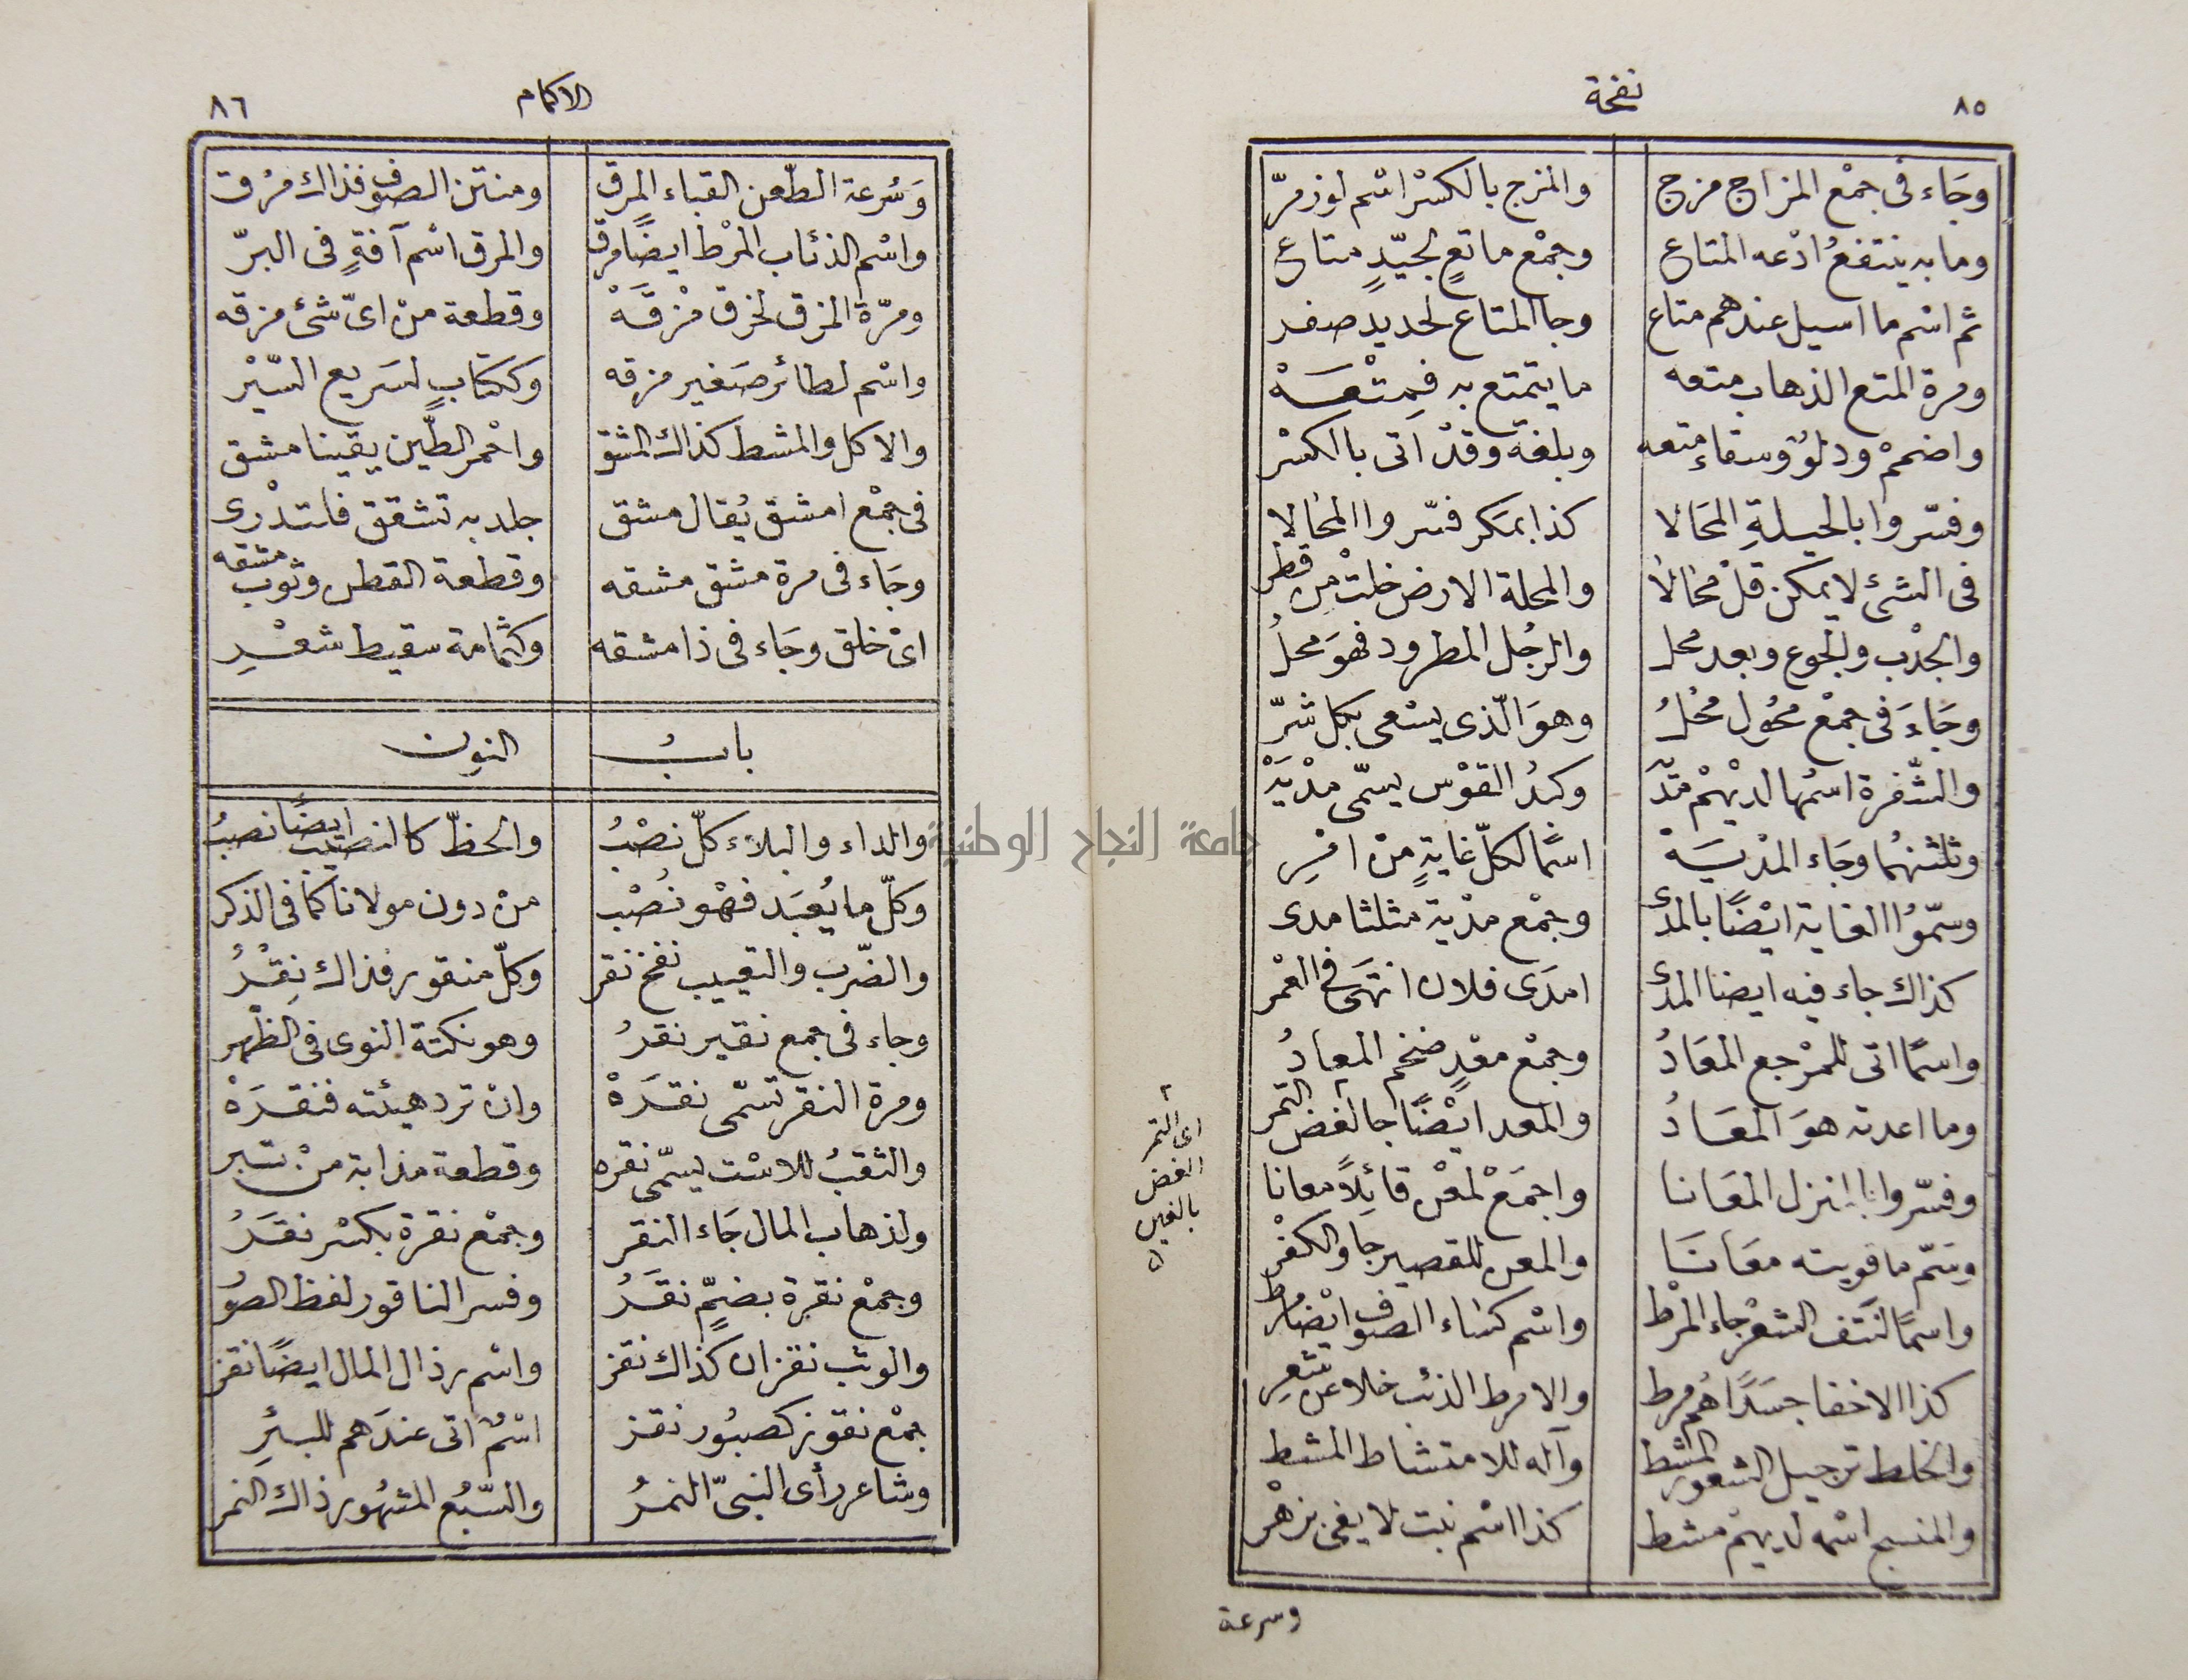 ٨٥ نفحة
وجَاء فى جمْع المزاج مزج والمزج بالكسْر اسْم لوز مرّ
وما به ينتفعُ ادْعه المتاع وجمْع ماتعٍ لجيّدٍ متاع
ثم اسْم ما اسيل عندهم متاع وجا المتاع لحديدٍ صفر
ومرة المتع الذهاب متعه ما يتمتع به فمِتْعَهْ
واضممْ ودلوٌ وسقاءٍ متعه وبلغة وقدْ اَتى بالكسْر
وفسّروا بالحيلةِ المحَالا كذا بمكر فسّروا المحالا
فى الشئ لا يمكن قلْ محالا والمحلة الارض خلتْ مِن قطْر
والجدْب والجوع وبعد محل والرجُل المطرود فهوَ محلُ
وجَاءَ فى جمْع محُول محُلُ وهوَ الّذى يسْعى بكل شرّ
والشّفرة اسمُها لديْهمْ مدْيَة وكبدُ القوْس يسمّى مدْيَهْ
وثلثنهُما وجَاء المدْيَهْ اسمًا لكلّ غايةٍ منْ امْرِ
وسمّوُا الغاية ايْضًا بالمدى وجمْع مدْية مثلثا مدى
كذاك جاء فيه ايضا المدى امدَى فلان انتهَى فى العمْر
واسمًا اتى للمرْجع المعَادُ وجمْع معْدٍ ضخم المعادُ
وما اعدته هوَ المعَادُ والمعد ايْضًا جا لغض التمر
وفسّروا بالمنزل المعَانا واجمَعْ لمعْن قائِلاً معانا
وسَمّ ما قويته معَانَا والمعن للقصير جا والكفْر
واسمًا لنَتف الشعْر جاء المرْط واسْم كساء الصوف ايْضا مرط
كذا الاخفا جسَدًا هُم مرط والامرط الذئب خلا عن شعرِ
والخلط ترجيل الشعور المشط وآلة للامتشاط المشط
والمنسج اسْمه لديهمْ مشط كذا اسْم نبت لا يفى بزهْر
٢
اى التمر
الغض
بالغين
وسرعة
الاكمام ٨٦
وَسُرعة الطّعن القباء المرق ومنتن الصوف فذاك مرْق
واسْم الذئاب المرْط ايضًا مرق والمرق اسْم آفةٍ فى البرّ
ومرّة المزق لخرق مزْقَهْ وقطعة منْ اىّ شئ مزقه
واسْم لطائر صَغير مزقه وككتابٍ لسَريع السّيْر
والاكل والمشط كذاك المشق واحْمر الطّين يقينا مشق
فى جمْع امشق يُقال مشق جلد به تشقق فاستدْرى
وجَاء فى مرة مشق مشقه وقطعة القطن وثوب مشقه
اىْ خلق وجَاء فى ذا مشقه وكثُمامة سقيط شعْرِ
بابُ النون
والداء والبلاء كلّ نصْبُ والحظّ كالنصيب ايضًا نصبُ
وكلّ ما يُعبَد فهْو نُصْب منْ دون مولانا كما فى الذكر
والضّرب والتعييب نفخ نقر وكلّ منقور فذاك نِقْرُ
وجاء فى جمع نقير نقرُ وهو نكتة النوى فى الظّهر
ومرة النقر تسمّى نقرَهْ وانْ ترد هيئته فنقرَهْ
والثقبُ للاسْت يسمّى نقره وقطعة مذابة منْ تبر
ولذهاب المال جَاء النقر وجمْع نقرة بكسْر نقرُ
وجمْع نقرة بضمٍّ نقَرُ وفسر الناقور لفظ الصوُر
والوثب نقزان كذاك نقز واسْم رذال المال ايضًا نقز
جمْع نقوز كصبُور نقز اسْمٌ اتى عندَهم للبئرِ
وشاعر رأى النبىّ النمرُ والسّبُع المشهُور ذاك النمر